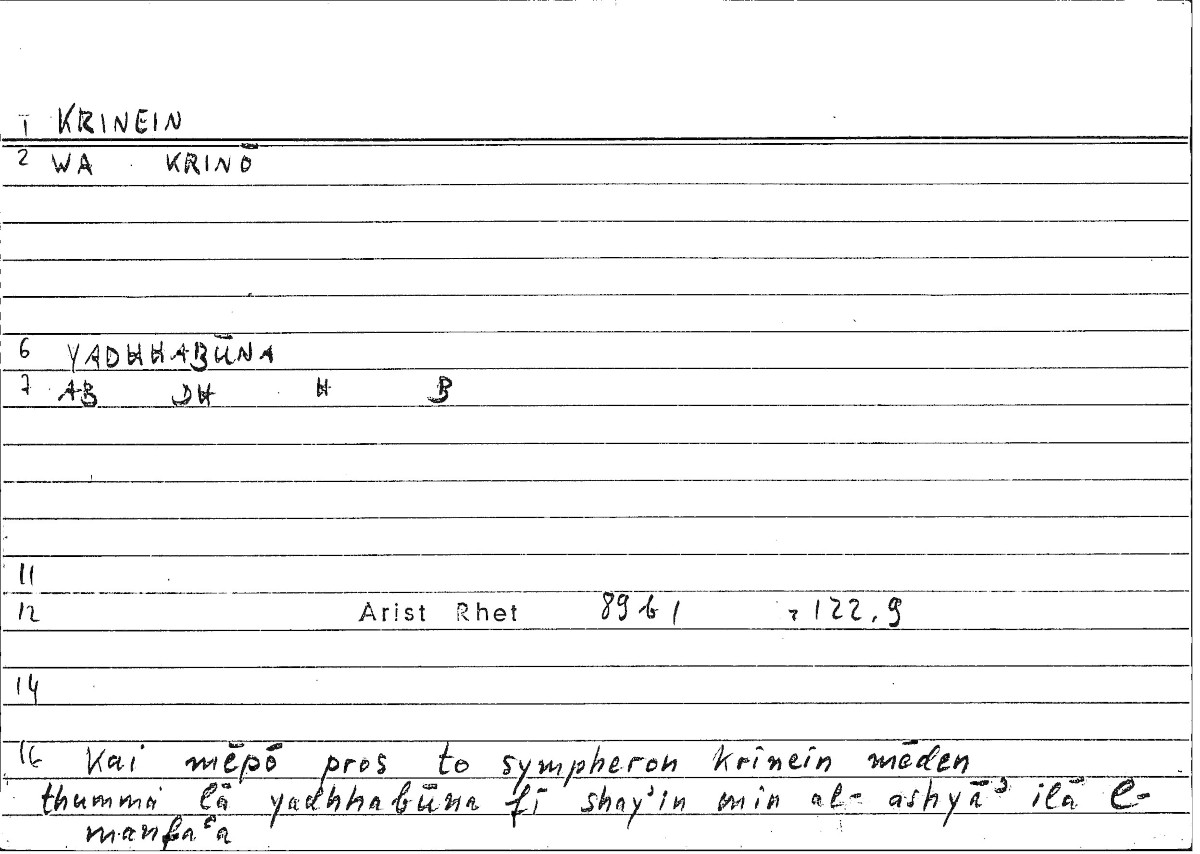 1 KRINEIN
2 WA KRINŌ
6 YADHHABŪNA
7 AB DH H B
11
12 Arist Rhet 89 b 1 = 122,9
14
16 Kai mēpō pros to sympheron krinein mēden
thumma lā yadhhabūna fī shayʾin min al- ashyāʾ ilā l-
manfaʿa